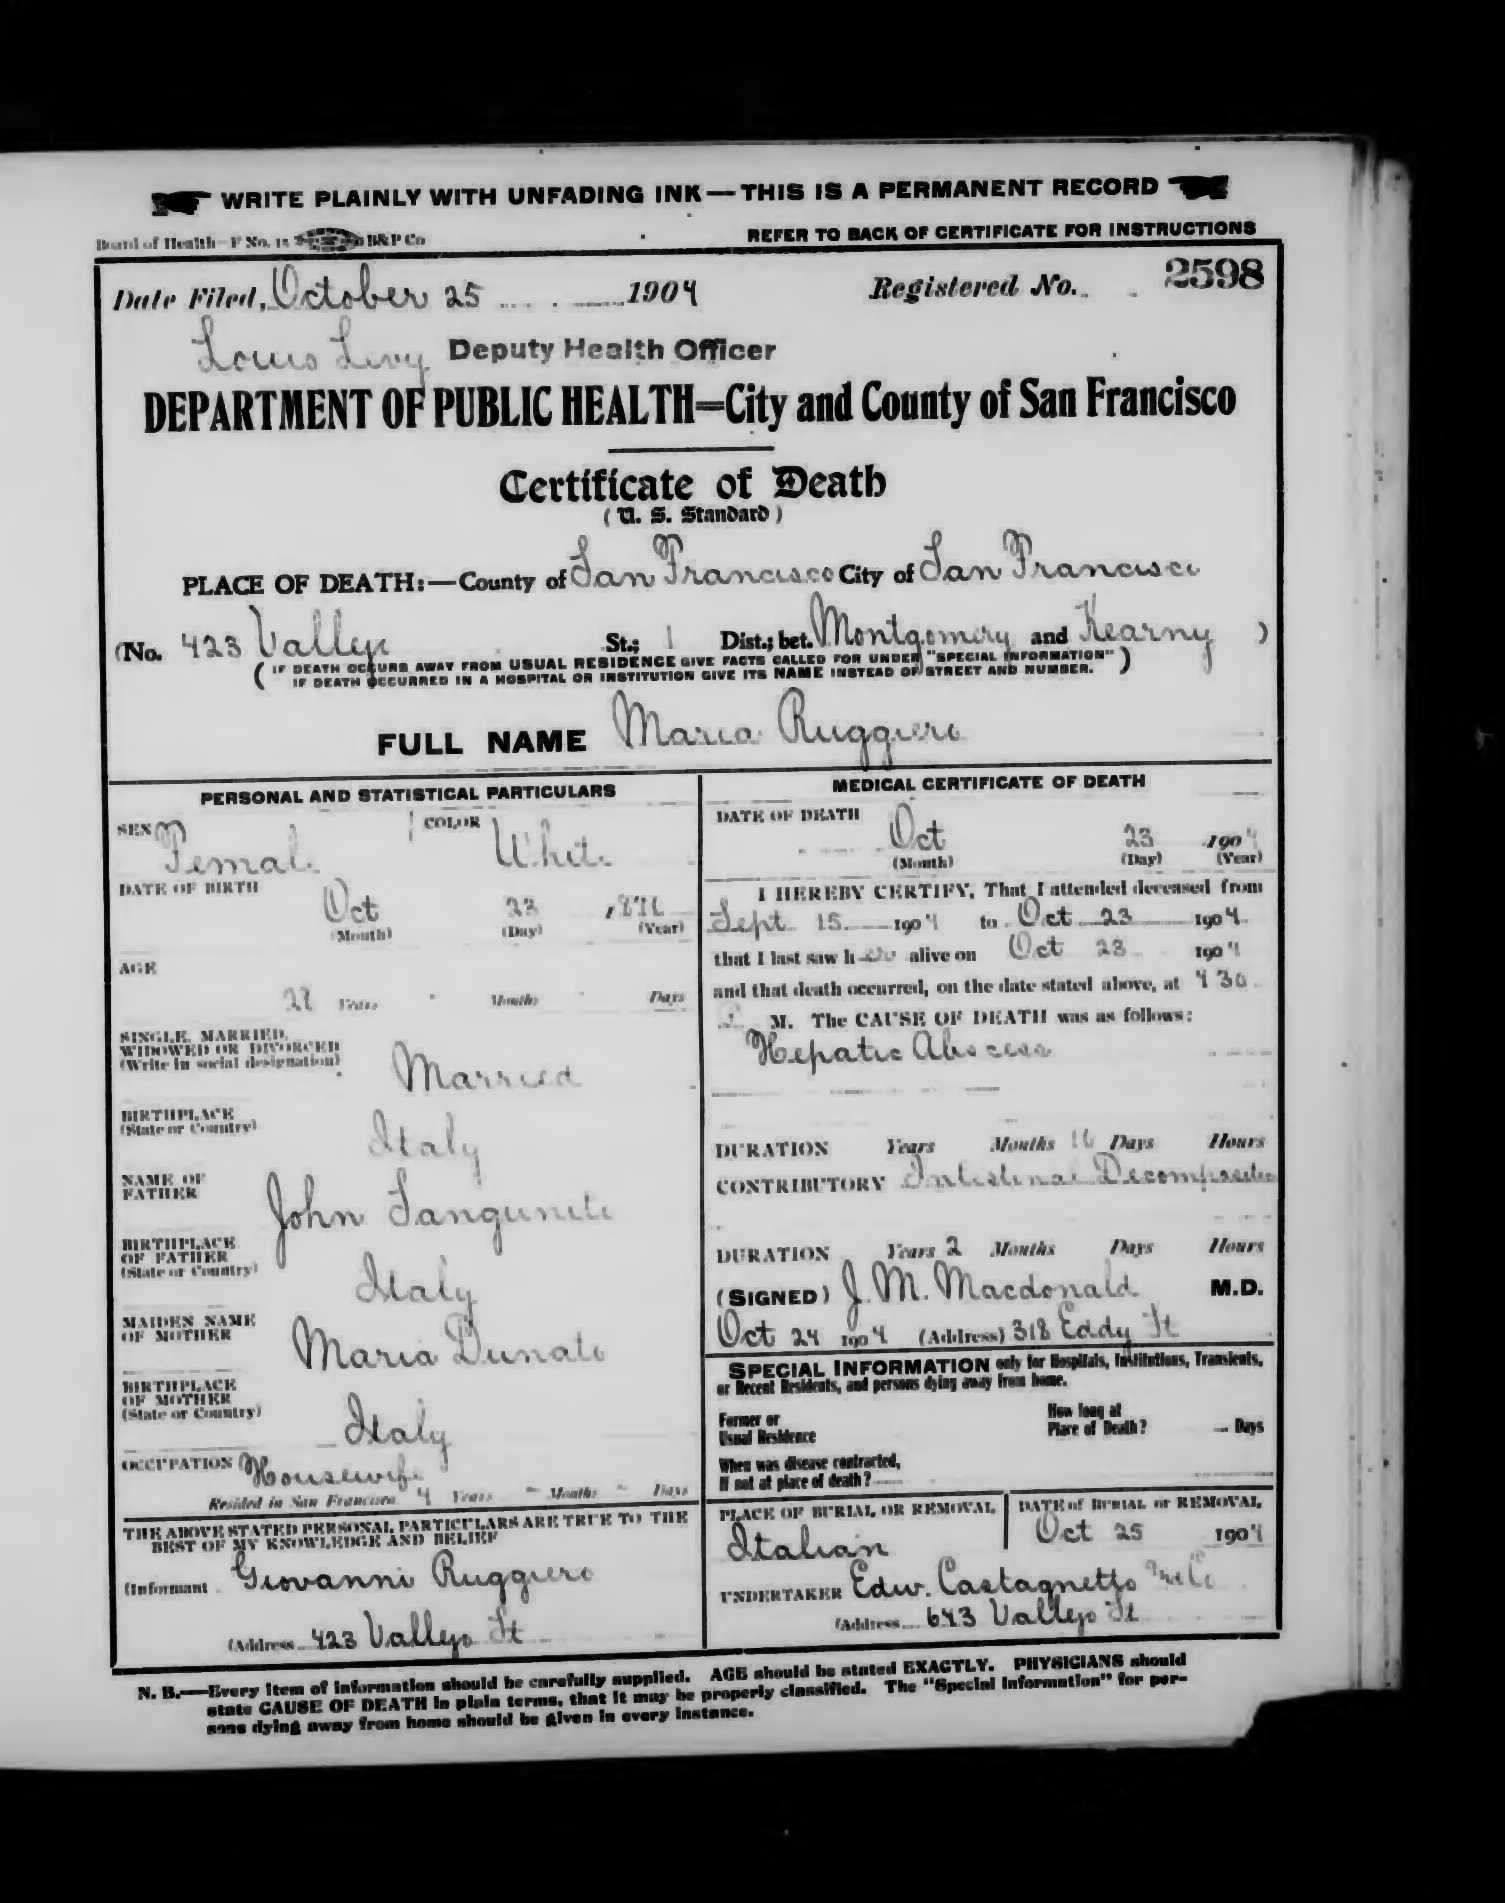 WRITE PLAINLY WITH UNFADING INK—THIS IS A PERMANENT RECORD
Board of Health—F No. 15 B&P Co
REFER TO BACK OF CERTIFICATE FOR INSTRUCTIONS
Date Filed, October 25 1904 Registered No. 2598
Louis Levy Deputy Health Officer
DEPARTMENT OF PUBLIC HEALTH=City and County of San Francisco
Certificate of Death
(U. S. Standard)
PLACE OF DEATH:—County of San Francisco City of San Francisco
(No. 423 Vallejo St.; 1 Dist.; bet. Montgomery and Kearny )
( IF DEATH OCCURS AWAY FROM USUAL RESIDENCE GIVE FACTS CALLED FOR UNDER "SPECIAL INFORMATION" )
IF DEATH OCCURRED IN A HOSPITAL OR INSTITUTION GIVE ITS NAME INSTEAD OF STREET AND NUMBER.
FULL NAME Maria Ruggiero
PERSONAL AND STATISTICAL PARTICULARS
SEX Female COLOR White
DATE OF BIRTH Oct 23 1876
(Month) (Day) (Year)
AGE
28 Years Months Days
SINGLE, MARRIED,
WIDOWED OR DIVORCED
(Write in social designation) Married
BIRTHPLACE
(State or Country) Italy
NAME OF
FATHER John
BIRTHPLACE
OF FATHER
(State or Country) Italy
MAIDEN NAME
OF MOTHER Maria Dunato
BIRTHPLACE
OF MOTHER
(State or Country) Italy
OCCUPATION Housewife
Resided in San Francisco 4 Years - Months - Days
THE ABOVE STATED PERSONAL PARTICULARS ARE TRUE TO THE
BEST OF MY KNOWLEDGE AND BELIEF
(Informant Giovanni Ruggiero
(Address 423 Vallejo St
MEDICAL CERTIFICATE OF DEATH
DATE OF DEATH
Oct 23 1904
(Month) (Day) (Year)
I HEREBY CERTIFY, That I attended deceased from
Sept 15 1904 to Oct 23 1904
that I last saw her alive on Oct 23 1904
and that death occurred, on the date stated above, at 4 30
M. The CAUSE OF DEATH was as follows:
Hepatic Abscess
DURATION Years Months 16 Days Hours
CONTRIBUTORY Intestinal Decomposition
DURATION Years 2 Months Days Hours
(SIGNED) J. M. Macdonald M.D.
Oct 24 1904 (Address) 318 Eddy St
SPECIAL INFORMATION only for Hospitals, Institutions, Transients,
or Recent Residents, and persons dying away from home.
Former or
Usual Residence
How long at
Place of Death? Days
When was disease contracted,
If not at place of death?
PLACE OF BURIAL OR REMOVAL
Italian
DATE of BURIAL or REMOVAL
Oct 25 1904
UNDERTAKER Edw. Castagnetto
(Address 643 Vallejo St
N. B.—Every item of information should be carefully supplied. AGE should be stated EXACTLY. PHYSICIANS should
state CAUSE OF DEATH in plain terms, that it may be properly classified. The "Special Information" for per-
sons dying away from home should be given in every instance.